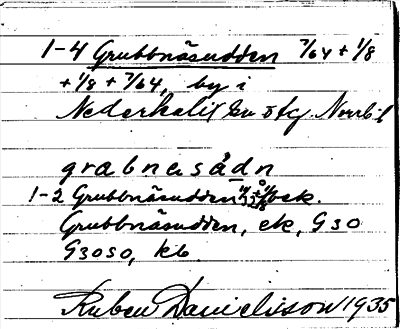 1-4 Grubbnäsudden 7/64 + 1/8
+ 1/8 + 7/64, by i
Nederkalix sn ö tg. Norrb. l
grabnesådn
1-2 Grubbnäsudden bek.
Grubbnäsudden, ek, G 30
G 30 SO, kb.
Ruben Danielsson 1935